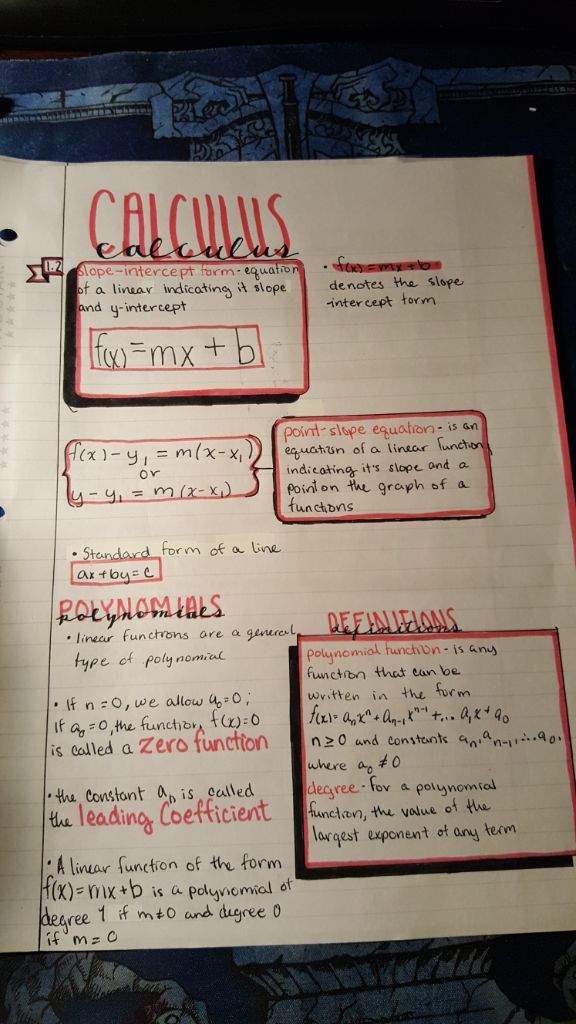 CALCULUS
calculus
1.2
slope-intercept form - equation
of a linear indicating it slope
and y-intercept
f(x) = mx + b
• f(x) = mx + b
denotes the slope
-intercept form
f(x) - y₁ = m(x - x₁)
or
y - y₁ = m(x - x₁)
point-slope equation - is an
equation of a linear function
indicating it's slope and a
point on the graph of a
functions
• Standard form of a line
ax + by = c
POLYNOMIALS
polynomials
• linear functions are a general
type of polynomial
• If n = 0, we allow a₀ = 0;
If a₀ = 0, the function f(x) = 0
is called a zero function
• the constant aₙ is called
the leading Coefficient
• A linear function of the form
f(x) = mx + b is a polynomial of
degree 1 if m ≠ 0 and degree 0
if m = 0
DEFINITIONS
definitions
polynomial function - is any
function that can be
written in the form
f(x) = aₙxⁿ + aₙ₋₁xⁿ⁻¹ + ... a₁x + a₀
n ≥ 0 and constants aₙ, aₙ₋₁, ... a₀,
where a₀ ≠ 0
degree - for a polynomial
function, the value of the
largest exponent of any term